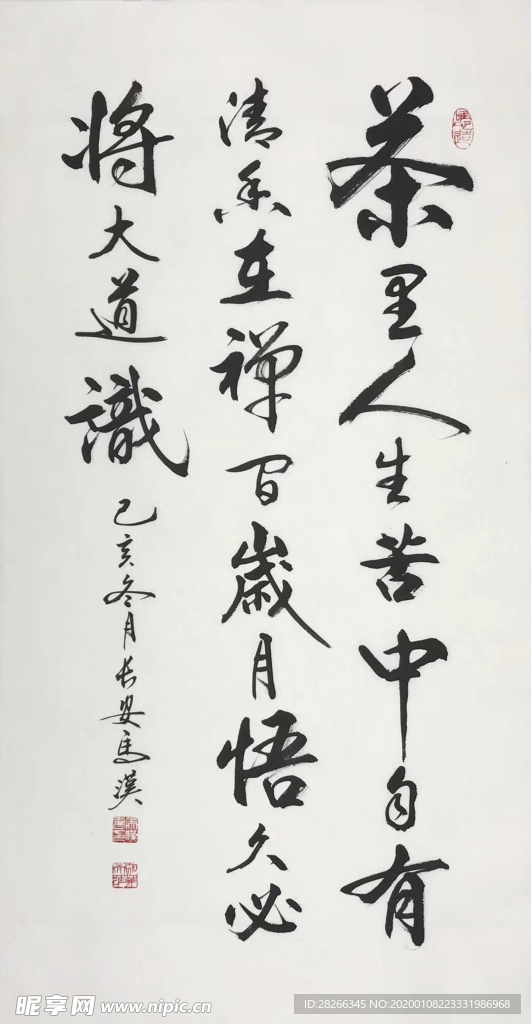 茶里人生苦中自有
清香在禅间歲月悟久必
将大道識
己亥冬月长安馬漢
昵享网 www.nipic.cn
ID:28266345 NO:20200108223331986968